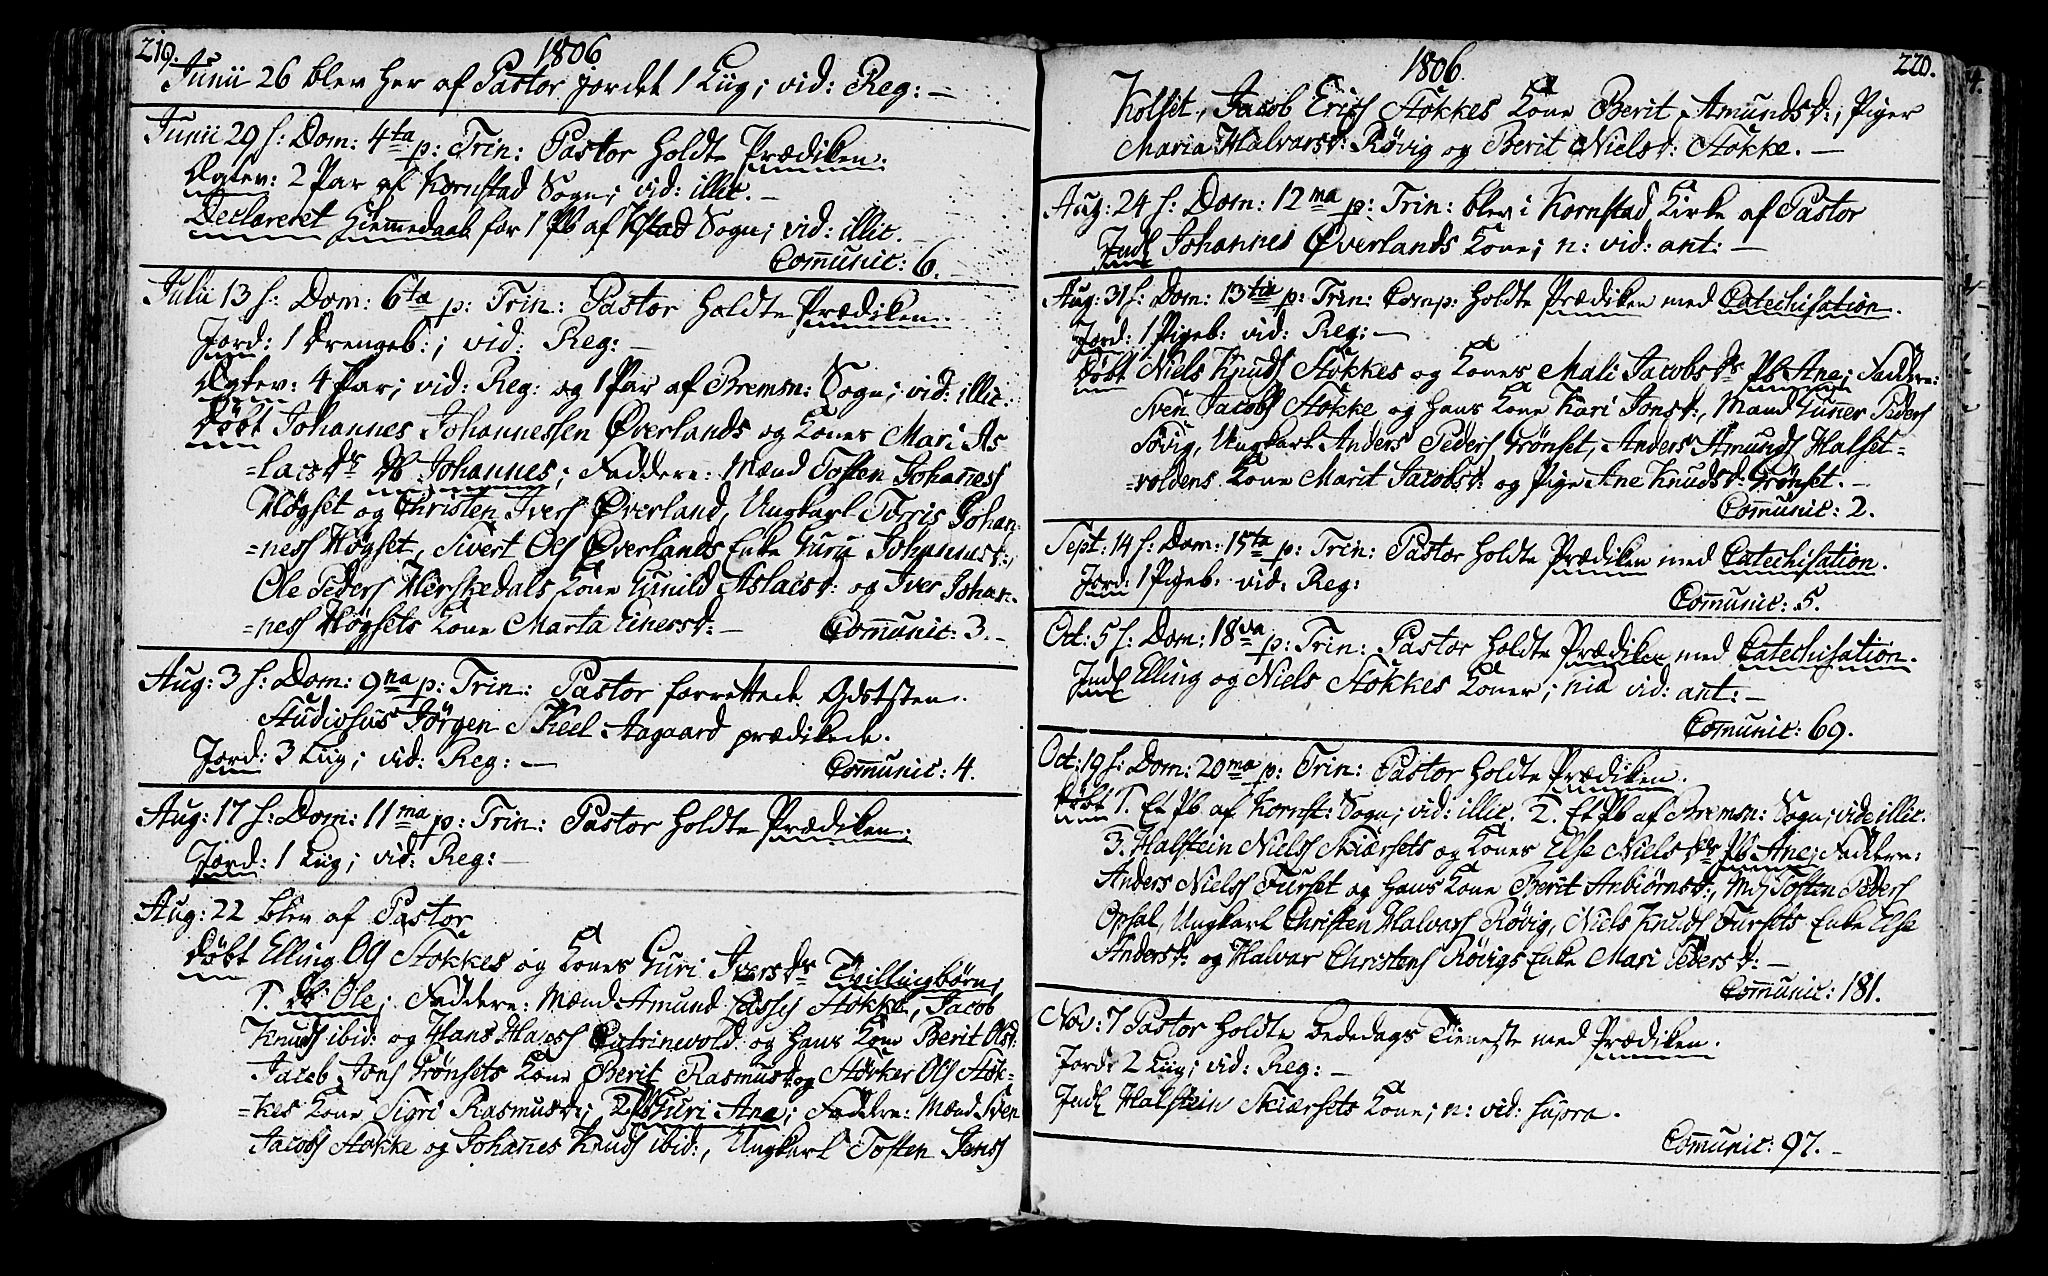 219.
1806
Junii 26 blev her af Pastor jordet 1 Liig; vid: Reg: —
Junii 29 s: Dom: 4ta p: Trin: Pastor holdte Prædiken.
Ægtev: 2 Par af Kornstad Sogn; vid: illic. —
Declareret Hiemedaab for 1 Pb af Kstad Sogn; vid: illic. —
Com̅unic: 6. —
Julii 13 s: Dom: 6tæ p: Trin: Pastor holdte Prædiken.
Jord: 1 Drengeb:; vid: Reg: —
Ægtev: 4 Par; vid: Reg: og 1 Par af Bremsn: Sogn; vid: illic.
Døbt Johannes Johannessen Øverlands og Kones Mari As-
=lacsdr Db Johannes; Faddere: Mænd Tosten Johaness
Høgset og Christen Ivers Øverland, Ungkarl Torris Johan-
=ness Høgset, Sivert Ols Øverlands Enke Guru Johannesd:,
Ole Peders Herskedals Kone Gunild Aslacsd: og Iver Johan-
=ness Høgsets Kone Marta Einersd: —
Com̅unic: 3. —
Aug: 3 s: Dom: 9na p: Trin: Pastor forrettede Gdststen.
Studiosus Jørgen Skeel Aagaard prædikede.
Jord: 3 Liig; vid: Reg: —
Com̅unic: 4.
Aug: 17 s: Dom: 11ma p: Trin: Pastor holdte Prædiken.
Jord: 1 Liig; vid: Reg: —
Aug: 22 blev af Pastor
Døbt Elling Ols Stokkes og Kones Guri Iversdr Tvillingbørn;
1. Db Ole; Faddere: Mænd Amund Lasses Stokke, Jacob
Knuds ibid: og Hans Hanss Catrinevold og hans Kone Berit Olsd:
Jacob Jons Grønsets Kone Berit Rasmusd: og Størker Ols Stok-
=kes Kone Sigri Rasmusd:; 2. Pb Guri Ane; Faddere: Mænd Sven
Jacobs Stokke og Johanes Knuds ibid:, Ungkarl Tosten Jonss
220.
1806.
Kolset, Jacob Erics Stokkes Kone Berit Amundsd:, Piger
Maria Halvarsd: Røvig og Berit Nielsd: Stokke. —
Aug: 24 s: Dom: 12ma p: Trin: blev i Kornstad Kirke af Pastor
Indl Johannes Øverlands Kone; n: vid: ant: —
Aug: 31 s: Dom: 13tia p: Trin: Comp: holdte Prædiken med Catechisation.
Jord: 1 Pigeb: vid: Reg: —
Døbt Niels Knuds Stokkes og Kones Mali Jacobsdr Pb Ane; Faddere:
Sven Jacobs Stokke og hans Kone Kari Jonsd:, Mand Gunner Peders
Søvig, Ungkarl Anders Peders Grønset, Anders Amunds Halset-
=voldens Kone Marit Jacobsd: og Pige Ane Knudsd: Grønset. —
Com̅unic: 2.
Sept: 14 s: Dom: 15ta p: Trin: Pastor holdte Prædiken med Catechisation.
Jord: 1 Pigeb: vid: Reg:
Com̅unic: 5.
Oct: 5 s: Dom: 18va p: Trin: Pastor holdte Prædiken med Catechisation.
Indl Elling og Niels Stokkes Koner; nia vid: ant: —
Com̅unic: 69.
Oct: 19 s: Dom: 20ma p: Trin: Pastor holdte Prædiken.
Døbt 1. Et Pb af Kornst: Sogn; vid: illic. 2. Et Pb af Bremsn: Sogn; vide illic.
3. Halstein Nielss Skiærsets og Kones Else Nielsdr Pb Ane; Faddere:
Anders Nielss Furset og hans Kone Berit Anbiørnsd:, Md Tosten Peders
Opsal, Ungkarl Christen Halvarss Røvig, Niels Knuds Fursets Enke Else
Andersd: og Halvar Christens Røvigs Enke Mari Pedersd: —
Com̅unic: 181.
Nov: 7 Pastor holdte Bededags Tieneste med Prædiken.
Jord: 2 Liig; vid: Reg: —
Indl Halstein Skiærsets Kone; n: vid: supra.
Com̅unic: 97. —